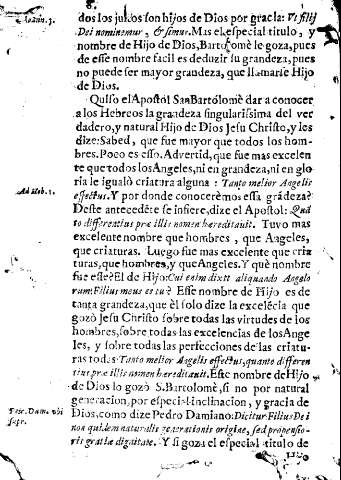 Ioann. 3.
dos los justos son hijos de Dios por gracia: Vt filij
Dei nominemur, & simus. Mas el especial titulo, y
nombre de Hijo de Dios, Bartolomè le goza, pues
de esse nombre facil es deduzir su grandeza, pues
no puede ser mayor grandeza, que llamarse Hijo
de Dios.
Quiso el Apostol San Bartolomè dar a conocer
a los Hebreos la grandeza singularissima del ver
dadero, y natural Hijo de Dios Jesu Christo, y les
dize: Sabed, que fue mayor que todos los hom-
bres. Poco es esso. Advertid, que fue mas excelen
te que todos los Angeles, ni en grandeza, ni en glo
ria le igualò criatura alguna: Tanto melior Angelis
Ad Heb. 1.
effectus. Y por donde conocerèmos essa grãdeza?
Deste antecedẽte se infiere, dize el Apostol: Quã
to differentius præ illis nomen hæreditavit. Tuvo mas
excelente nombre que hombres, que Angeles,
que criaturas. Luego fue mas excelente que cria
turas, que hombres, y que Angeles. Y què nombre
fue esse? El de Hijo: Cui enim dixit aliquando Angelo
rum: Filius meus es tu? Esse nombre de Hijo es de
tanta grandeza, que èl solo dize la excelẽcia que
gozò Jesu Christo sobre todas las virtudes de los
hombres, sobre todas las excelencias de los Ange
les, y sobre todas las perfecciones de las criatu-
ras todas. Tanto melior Angelis effectus, quanto differen
tius præ illis nomen hæreditavit. Este nombre de Hijo
de Dios lo gozò S. Bartolomè, si no por natural
generacion, por especial inclinacion, y gracia de
Petr. Dam. vbi
supr.
Dios, como dize Pedro Damiano: Dicitur Filius Dei
non quidem naturalis generationis origine, sed propensio-
ris gratiæ dignitate. Y si goza el especial titulo de
Hijo